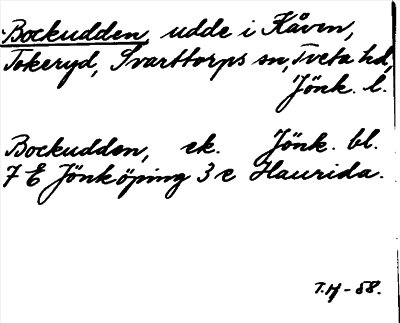 Bockudden, udde i Kåven,
Tokeryd, Svarttorps sn, Tveta hd,
Jönk. l.
Bockudden, ek. Jönk. bl.
7 E Jönköping 3 e Haurida.
T.H-58.